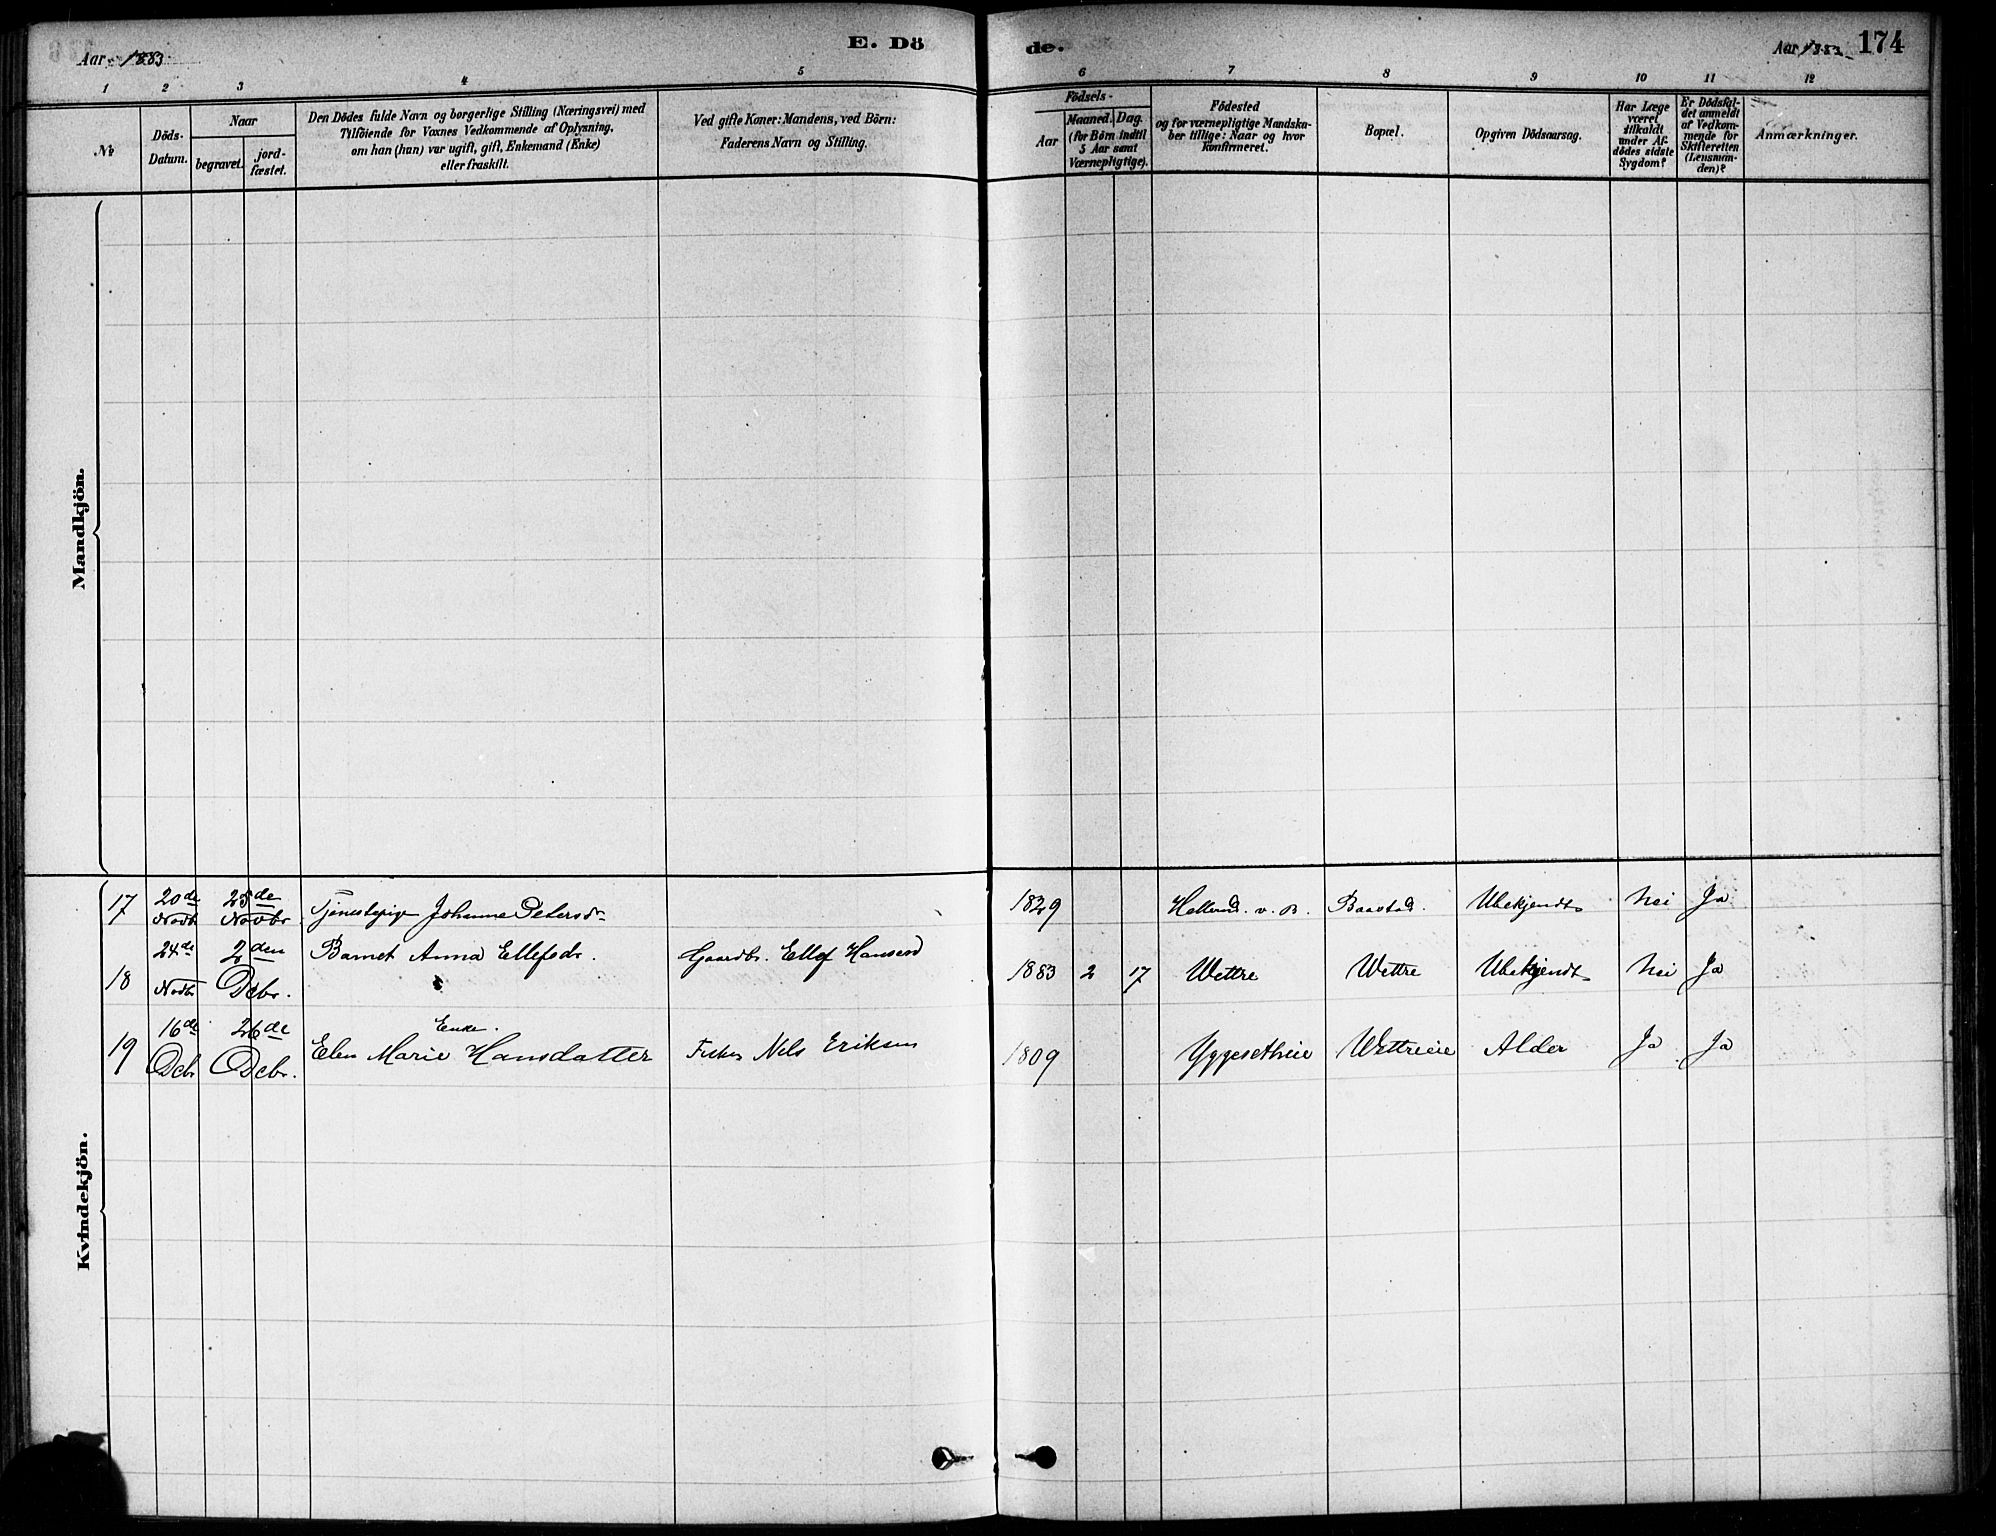 Aar 1883.
E. Dö
de.
Aar 1883. 174
1 2 3 4 5 6 7 8 9 10 11 12
№
Döds-
Datum.
Naar
begravet.
jord-
fæstet.
Den Dödes fulde Navn og borgerlige Stilling (Næringsvei) med
Tilföiende for Voxnes Vedkommende af Oplysning,
om han (hun) var ugift, gift, Enkemand (Enke)
eller fraskilt.
Ved gifte Koner: Mandens, ved Börn:
Faderens Navn og Stilling.
Födsels-
Aar
Maaned. Dag.
(for Börn indtil
5 Aar samt
Værnepligtige).
Födested
og for værnepligtige Mandska-
ber tillige: Naar og hvor
konfirmeret.
Bopæl.
Opgiven Dödsaarsag.
Har Læge
været
tilkaldt
under Af-
dödes sidste
Sygdom?
Er Dödsfal-
det anmeldt
af Vedkom-
mende for
Skifteretten
(Lensman-
den)?
Anmærkninger.
Mandkjön.
Kvindekjön.
17 20de Novbr 25de Novbr. Tjenestepige Johanne Petersdr 1829 v. B. Baastad. Ubekjendt nei Ja
18 24de Novbr 2den Dcbr. Barnet Anna Ellefsdr. Gaardbr. Ellef Hansen 1883 2 17 Wettre Wettre Ubekjendt nei Ja
Enke.
19 16de Dcbr 26de Dcbr. Elen Marie Hansdatter Nils Eriksen 1809 Yggesetheie Wettreeie Alder Ja Ja